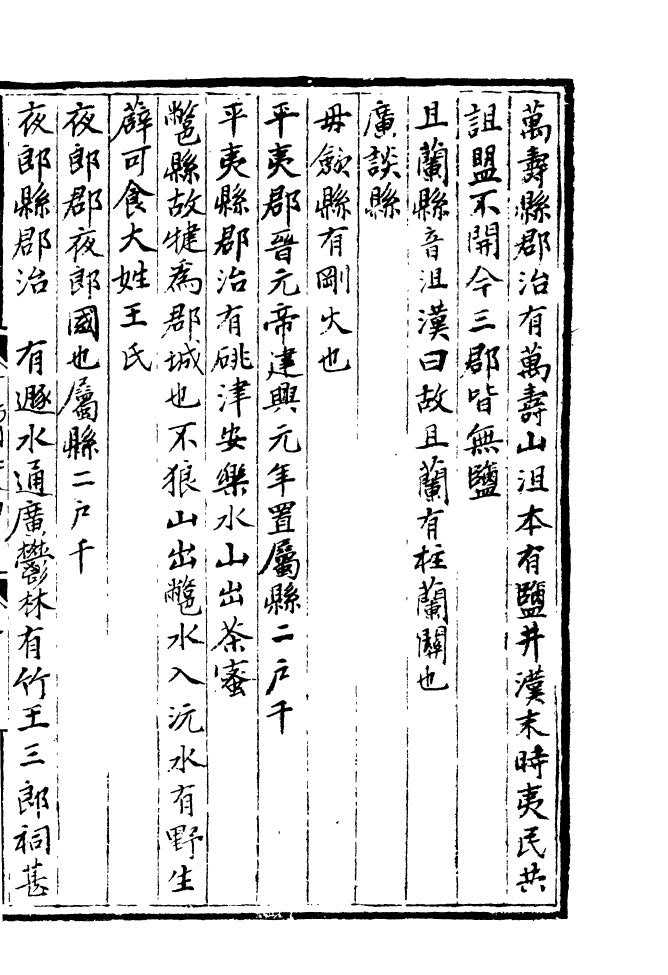 萬壽縣郡治有萬壽山沮本有鹽井漢末時夷民共
詛盟不開今三郡皆無鹽
且蘭縣音沮漢曰故且蘭有柱蘭關也
廣談縣
毋歛縣有剛火也
平夷郡晉元帝建興元年置屬縣二戶千
平夷縣郡治有䂪津安樂水山出茶蜜
鄨縣故犍為郡城也不狼山出鄨水入沅水有野生
薜可食大姓王氏
夜郎郡夜郎國也屬縣二戶千
夜郎縣郡治　有遯水通廣鬱林有竹王三郎祠甚